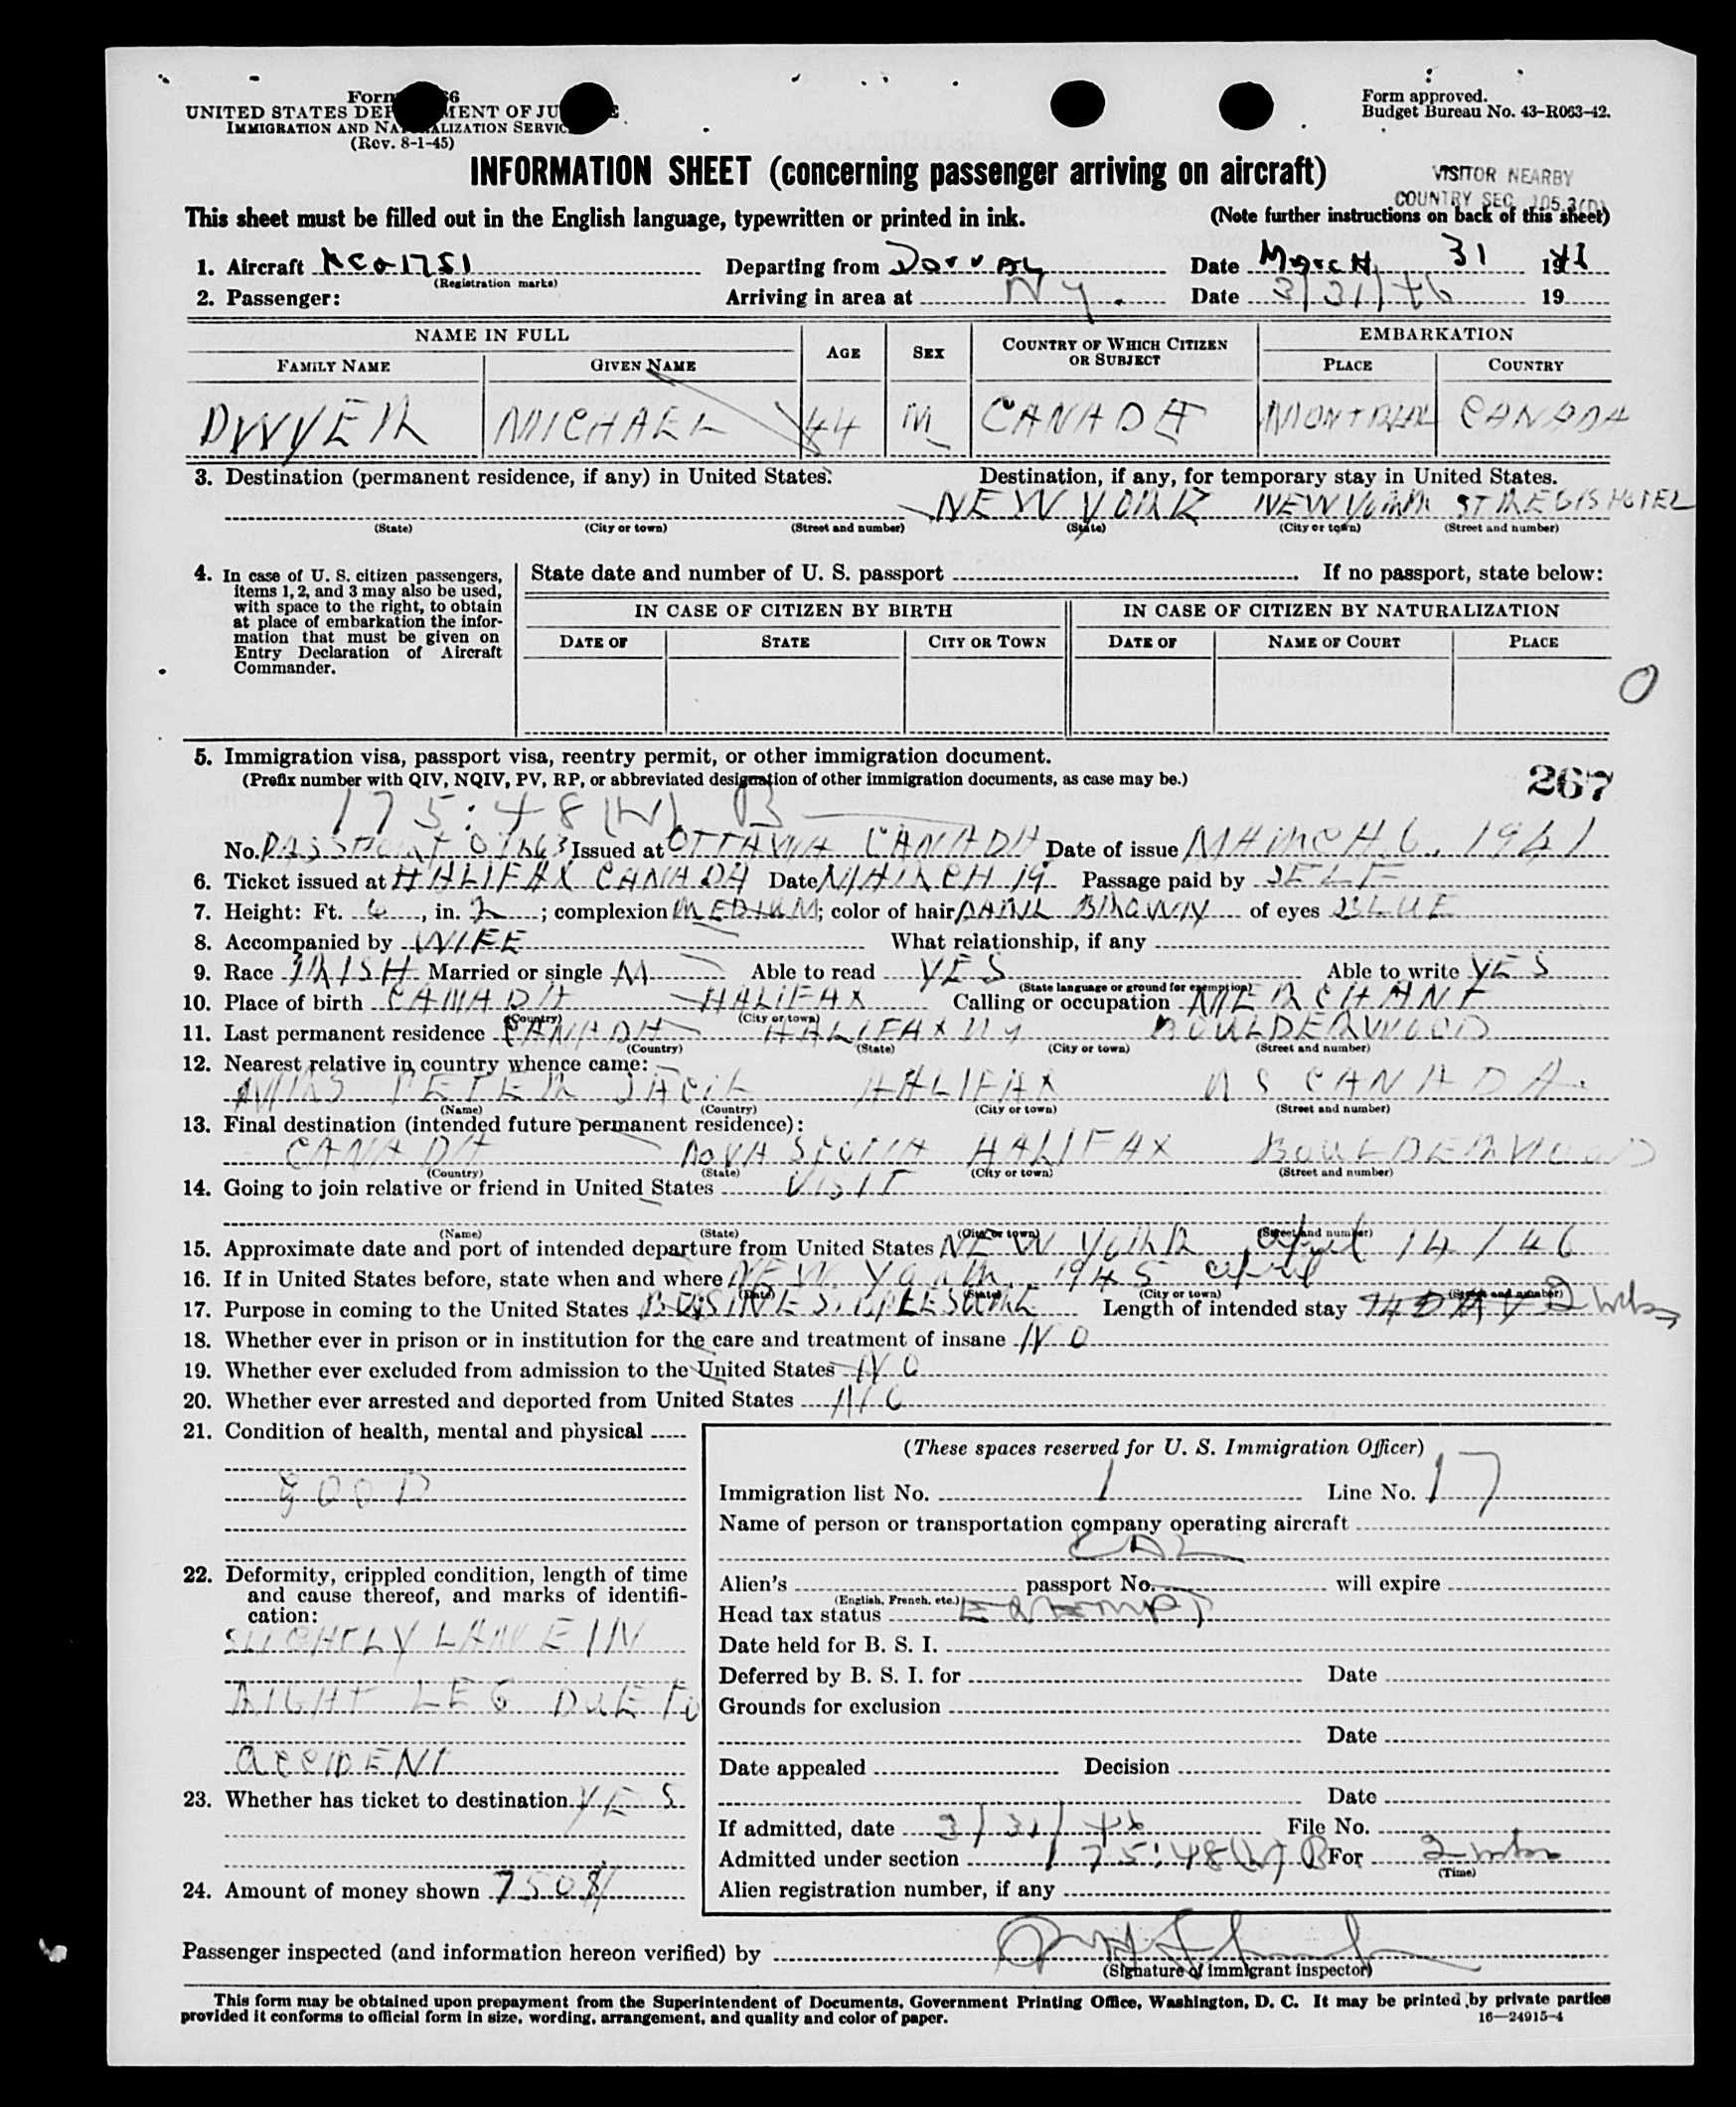 Form 66
UNITED STATES DEP MENT OF JU E
IMMIGRATION AND NA ALIZATION SERVIC
(Rev. 8-1-45)
Form approved.
Budget Bureau No. 43-R063-42.
INFORMATION SHEET (concerning passenger arriving on aircraft)
VISITOR NEARBY
COUNTRY SEC 105.3(D)
This sheet must be filled out in the English language, typewritten or printed in ink. (Note further instructions on back of this sheet)
1. Aircraft Departing from Dorval Date March 31 19
(Registration marks)
2. Passenger: Arriving in area at NY. Date 3/31/46 19
NAME IN FULL AGE SEX COUNTRY OF WHICH CITIZEN OR SUBJECT EMBARKATION
FAMILY NAME GIVEN NAME PLACE COUNTRY
DWYER MICHAEL 44 M CANADA MONTREAL CANADA
3. Destination (permanent residence, if any) in United States: Destination, if any, for temporary stay in United States.
NEW YORK NEW YORK ST REGIS HOTEL
(State) (City or town) (Street and number) (State) (City or town) (Street and number)
4. In case of U. S. citizen passengers, items 1, 2, and 3 may also be used, with space to the right, to obtain at place of embarkation the information that must be given on Entry Declaration of Aircraft Commander.
State date and number of U. S. passport . If no passport, state below:
IN CASE OF CITIZEN BY BIRTH IN CASE OF CITIZEN BY NATURALIZATION
DATE OF STATE CITY OR TOWN DATE OF NAME OF COURT PLACE
0
5. Immigration visa, passport visa, reentry permit, or other immigration document.
(Prefix number with QIV, NQIV, PV, RP, or abbreviated designation of other immigration documents, as case may be.)
267
175:48(W) B
No. PASSPORT Issued at OTTAWA CANADA Date of issue MARCH 6, 1941
6. Ticket issued at HALIFAX CANADA Date MARCH 19 Passage paid by SELF
7. Height: Ft. 6, in. 2; complexion MEDIUM; color of hair DARK BROWN of eyes BLUE
8. Accompanied by WIFE What relationship, if any
9. Race IRISH Married or single M Able to read YES Able to write YES
(State language or ground for exemption)
10. Place of birth CANADA HALIFAX Calling or occupation MERCHANT
(Country) (City or town)
11. Last permanent residence CANADA HALIFAX BOULDERWOOD
(Country) (State) (City or town) (Street and number)
12. Nearest relative in country whence came:
MRS PETER JACK HALIFAX N S CANADA
(Name) (Country) (City or town) (Street and number)
13. Final destination (intended future permanent residence):
CANADA NOVA SCOTIA HALIFAX BOULDERWOOD
(Country) (State) (City or town) (Street and number)
14. Going to join relative or friend in United States VISIT
(Name) (State) (City or town) (Street and number)
15. Approximate date and port of intended departure from United States NEW YORK April 14/46
16. If in United States before, state when and where NEW YORK, 1945 April
(Date) (State) (City or town) (Street and number)
17. Purpose in coming to the United States BUSINES. PLESURE Length of intended stay 14 DAY 2 wks
18. Whether ever in prison or in institution for the care and treatment of insane NO
19. Whether ever excluded from admission to the United States NO
20. Whether ever arrested and deported from United States NO
21. Condition of health, mental and physical
GOOD
22. Deformity, crippled condition, length of time and cause thereof, and marks of identification:
SLIGHTLY LAME IN
RIGHT LEG DUE TO
ACCIDENT
23. Whether has ticket to destination YES
24. Amount of money shown 750$
(These spaces reserved for U. S. Immigration Officer)
Immigration list No. 1 Line No. 17
Name of person or transportation company operating aircraft
Alien's passport No. will expire
(English, French, etc.)
Head tax status EXEMPT
Date held for B. S. I.
Deferred by B. S. I. for Date
Grounds for exclusion
Date
Date appealed Decision
Date
If admitted, date 3/31/46 File No.
Admitted under section 175:48(W) B For 2 wks
(Time)
Alien registration number, if any
Passenger inspected (and information hereon verified) by
(Signature of immigrant inspector)
This form may be obtained upon prepayment from the Superintendent of Documents, Government Printing Office, Washington, D. C. It may be printed by private parties
provided it conforms to official form in size, wording, arrangement, and quality and color of paper.
16—24915-4